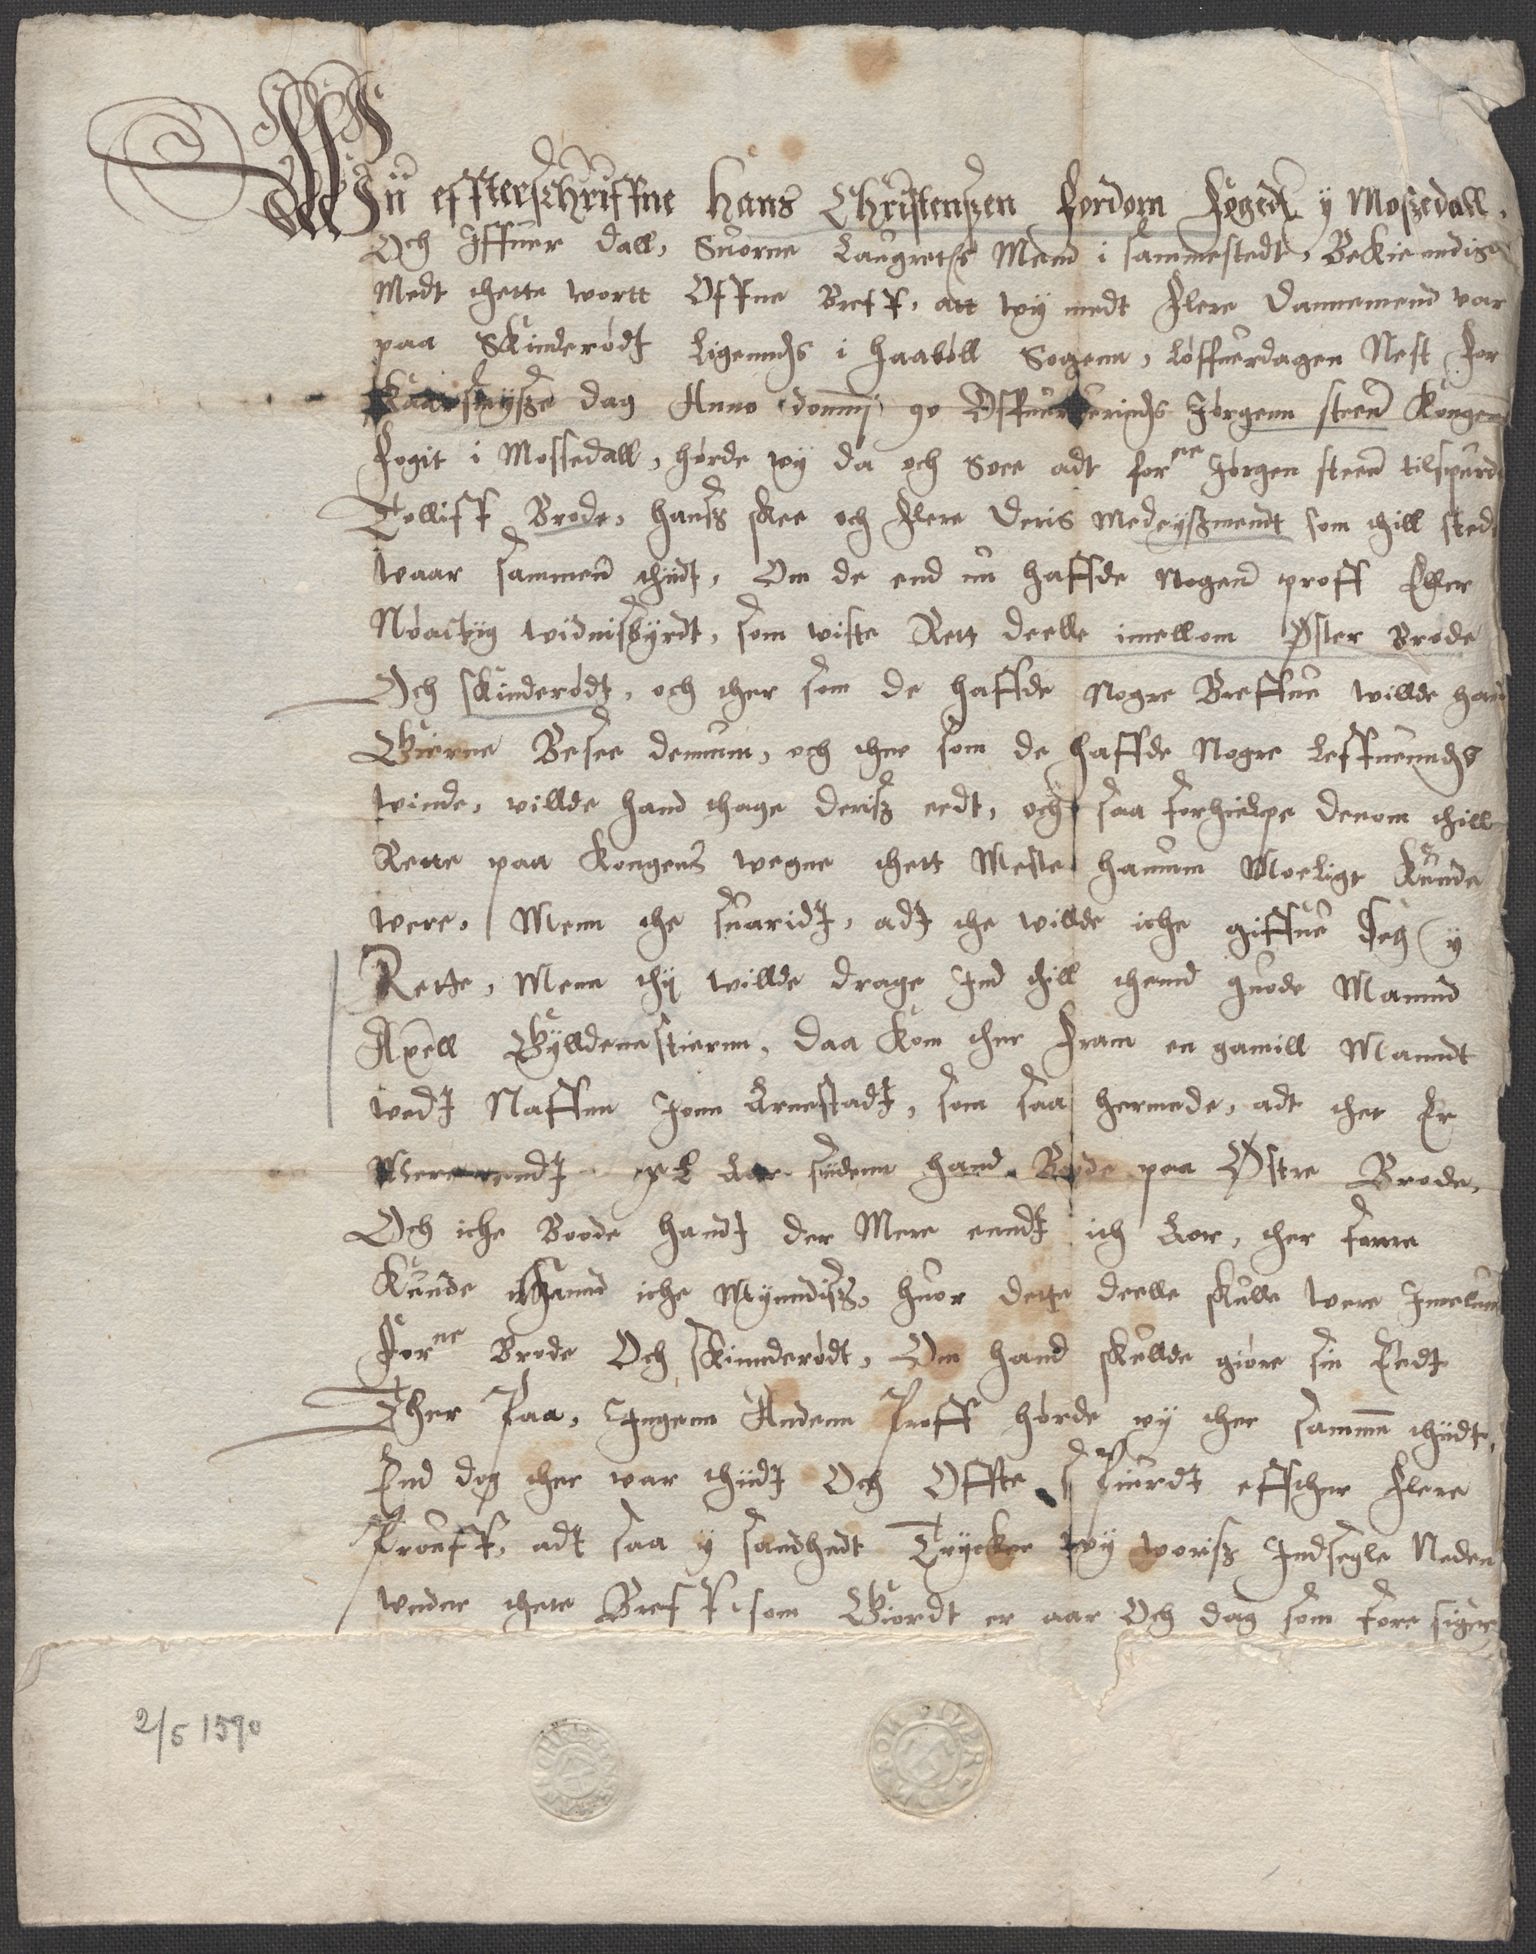 Wij effterschriffne Hans Christenszen fordom fogedt y Moszedall,
Och Iffuer dall, Suorne Laugretis Mend i sammestedt, Bekiendis
Medt thette wortt Offne Breff, att wy medt flere Dannemend var
paa Skinderødt Ligenndis i Haabøll Sogenn, Løffuerdagen Nest for
Kaarsmysze dag Anno domnj 90 Offuerverinds Jørgenn steen Kongens
fogit i Mossedall, hørde wy da och Soee adt forne Jørgen steen tilspurde
Tolliff Brode, Hansz skee och flere deris Medeyszmendt som thill sted
waar sammen thiidt, Om de end nu haffde Nogen proff Eller
Nøactiig widnisbyrdt, som wiste Rett deelle imellom Øster Brode
Och skinderødt, och ther som de haffde Nogre Breffue willde hand
Gierne Besee dennum, och ther som de haffde Nogre Leffuenndis
vinde, willde hand thage derisz eedt, och saa forhielpe denom thill
Rette paa Kongens wegne thett Meste hannum Moeligt kunde
were, Menn the suaridt, adt the willde iche giffue seg y
Rette, Menn thy willde drage Ind thill thend guode Mannd
Axell Gylldennstiernn, Daa kom ther fram en gamill Manndt
wedt Naffnn Jonn Arnestadt, som saa hermede, adt thet Er
Mere endt xl Aar sidenn hand Bode paa Østre Brode,
Och iche Boode handt der Mere enndt ith Aar, ther forre
kunde thannd iche Mynndisz, huor dette deelle skulle were Imelum
Forne Brode Och skinnderødt, Om hand skullde giøre sin Eedt
Ther Paa, Inngenn Andenn Proff hørde wy ther sammen thiidt,
End dog ther war thiidt Och Offte spurdt effther flere
Prouff, adt saa y sandhedt Trycker wy worisz Indsegle Neden
wnder thette Breff som Giordt er aar Och dag som fore siger
2/5 1590